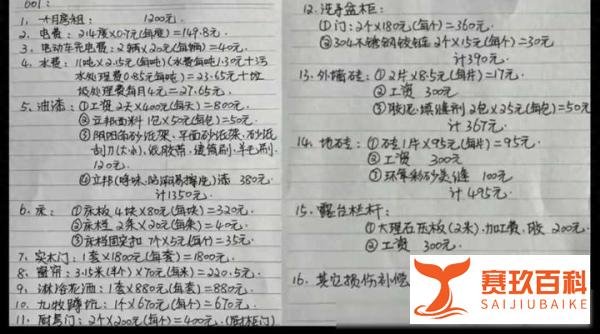 001:
1. 一个月房租: 1200元.
2. 电费: 214度×0.7元(每度)=149.8元.
3. 电动车充电费: 2辆×20元(每辆)=40元.
4. 水费: 11吨×2.15元(每吨)(水费每吨1.30元+污
水处理费0.85元每吨)=23.65元+垃
圾处理费每月4元=27.65元.
5. 油漆: ①工资2天×400元(每天)=800元.
②立邦面料1包×50元(每包)=50元.
③阴阳角砂泥架、平面砂泥架、砂泥
刮刀(大小)、收胶带、滚筒刷、羊毛刷
120元.
④立邦(呼吸、防潮易擦洗)漆 380元.
计1350元.
6. 床: ①床板4块×80元(每块)=320元.
②床档2条×20元(每条)=40元.
③床档固定扣7个×5元(每个)=35元.
7. 实木门: 1套×1800元(每套)=1800元.
8. 窗帘: 3.15米(半个)×70元(每米)=220.5元.
9. 淋浴花洒: 1套×880元(每套)=880元.
10. 九牧蹲坑: 1个×670元(每个)=670元.
11. 厨房门: 2个×200元(每个)=400元.(厨柜门)
12. 洗手盆柜:
①门: 2个×180元(每个)=360元.
②304不锈钢铰链2个×15元(每个)=30元
计390元.
13. 外墙砖: ①2片×8.5元(每片)=17元.
②工资 300元
③胶泥填缝剂2包×25元(每包)=50元
计367元.
14. 地砖: ①砖1片×95元(每片)=95元.
②工资 300元
③环氧彩砂美缝 100元
计495元.
15. 露台栏杆:
①大理石压板(2米)、加工费、胶 200元.
②工资 300元.
16. 其它损伤补偿
赛玖百科
SAIJIUBAIKE